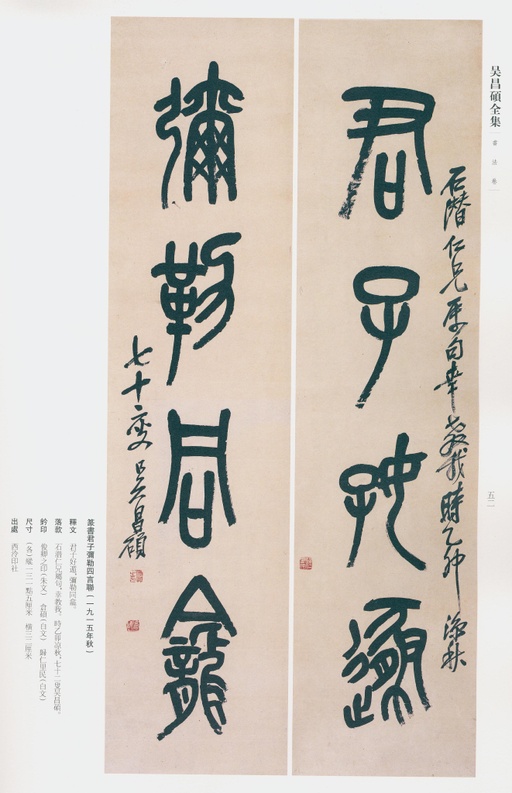 吴昌碩全集
書法卷
石潛仁兄屬句幸教我時乙卯涼秋
君子好遯
彌勒同龕
七十二叟吴昌碩
五二
篆書君子彌勒四言聯（一九一五年秋）
釋文　君子好遯，彌勒同龕。
落款　石潛仁兄屬句，幸教我。時乙卯涼秋，七十二叟吴昌碩。
鈐印　俊卿之印（朱文）　倉碩（白文）　歸仁里民（白文）
尺寸　（各）縱一三一點五厘米　橫三二厘米
出處　西泠印社